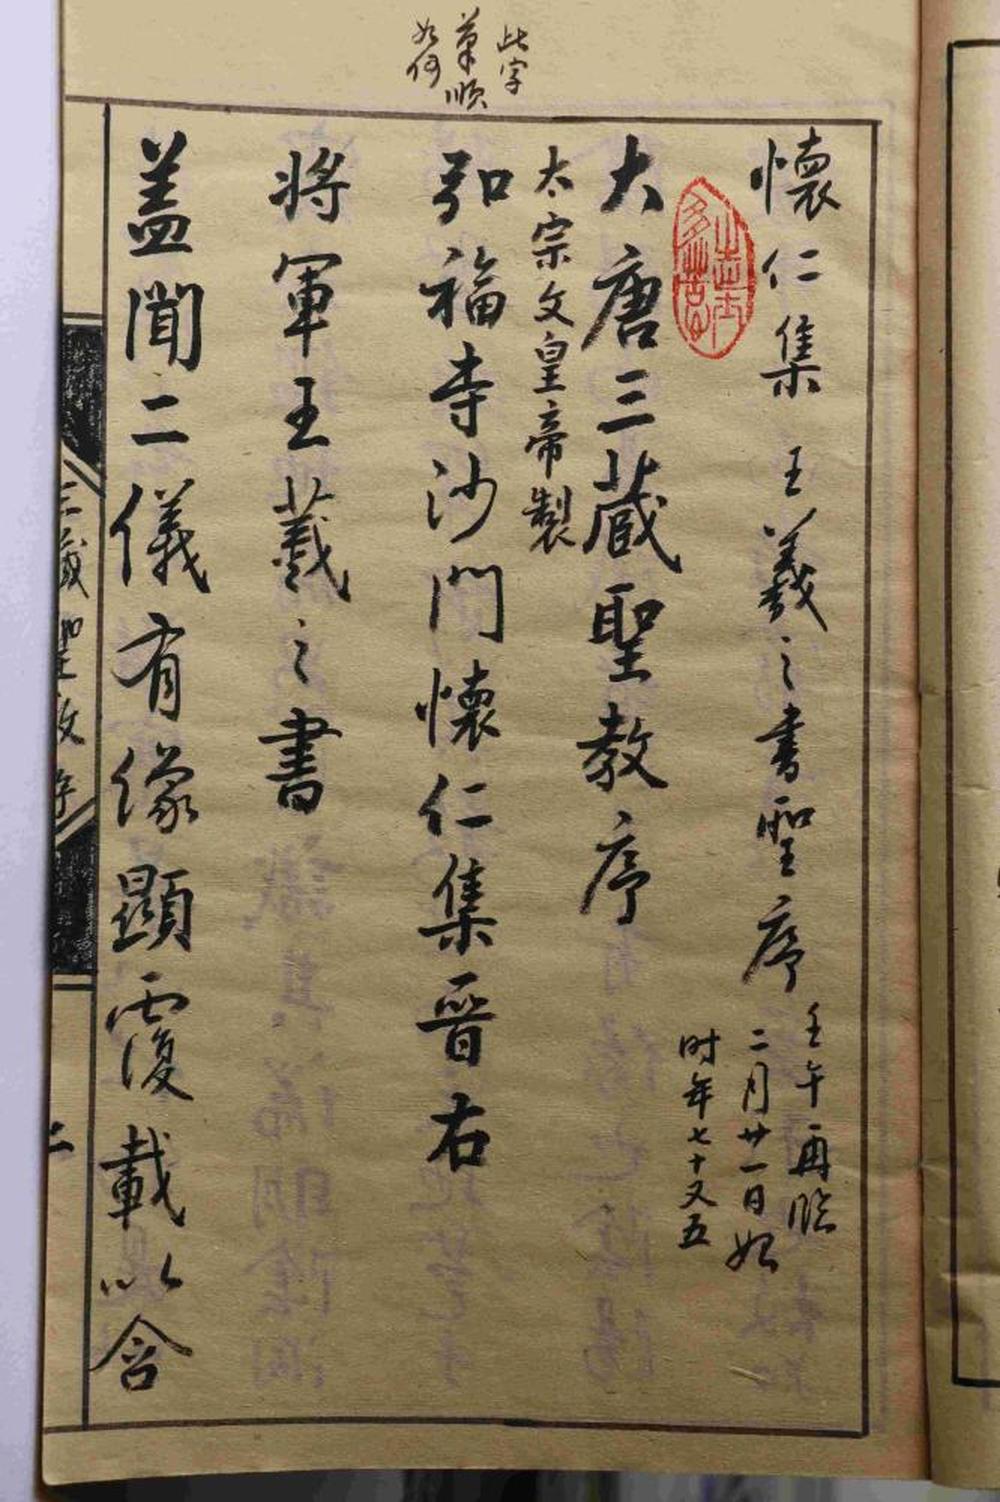 此字
草順
如何
懷仁集 王羲之書聖序
壬午再臨
二月廿一日始
时年七十又五
大唐三藏聖教序
太宗文皇帝製
弘福寺沙門懷仁集晉右
將軍王羲之書
蓋聞二儀有像顯覆載以含
三藏聖教序